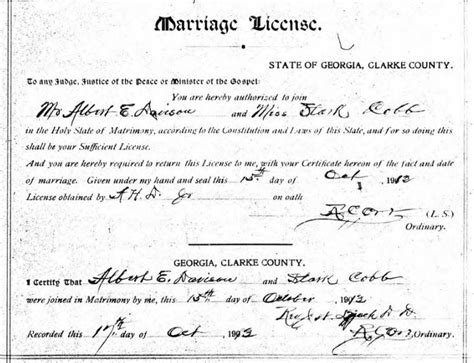 Marriage License.
STATE OF GEORGIA, CLARKE COUNTY.
To any Judge, Justice of the Peace or Minister of the Gospel:
You are hereby authorized to join
Mr Albert E. Davison and Miss Stark Cobb
in the Holy State of Matrimony, according to the Constitution and Laws of this State, and for so doing this
shall be your Sufficient License.
And you are hereby required to return this License to me, with your Certificate hereon of the fact and date
of marriage. Given under my hand and seal this 15th day of Oct 1912
License obtained by A. H. D. on oath
(L. S.)
Ordinary.
GEORGIA, CLARKE COUNTY.
I Certify That Albert E. Davison and Stark Cobb
were joined in Matrimony by me, this 15th day of October 1912
Recorded this 17th day of Oct 1912
Ordinary.